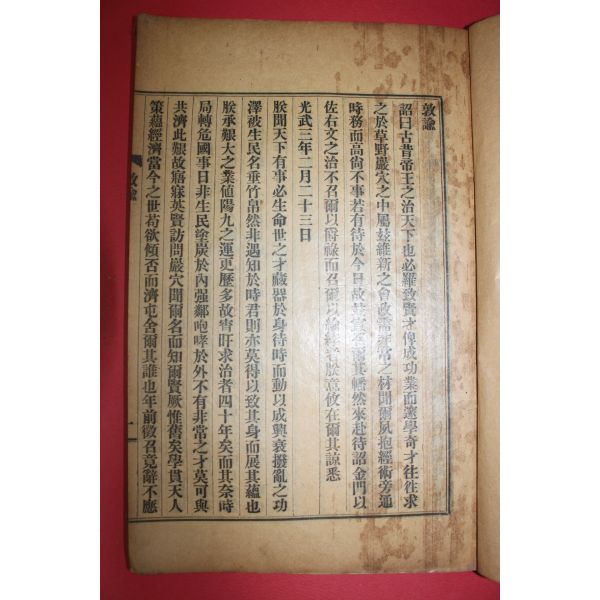 敦諭
詔曰古昔帝王之治天下也必羅致賢才俾成功業而邃學奇才往往求
之於草野巖穴之中屬玆維新之會改需非常之材聞爾夙抱經術旁通
時務而高尙不事若有待於今日故玆貴爾其幡然來赴待詔金門以
佐右文之治不召爾以爵祿而召爾以論經者朕意攸在爾其諒悉
光武三年二月二十三日
朕聞天下有事必生命世之才藏器於身待時而動以成興衰撥亂之功
澤被生民名垂竹帛然非遇知於時君則亦莫得以致其身而展其蘊也
朕承艱大之業値陽九之運更歷多故宵旰求治者四十年矣而其奈時
局轉危國事日非生民塗炭於內强鄰咆哮於外不有非常之才莫可與
共濟此艱故寤寐英賢訪問巖穴聞爾名而知爾賢厥惟舊矣學貫天人
策蘊經濟當今之世苟欲傾否而濟屯舍爾其誰也年前徵召竟辭不應
敦諭
一